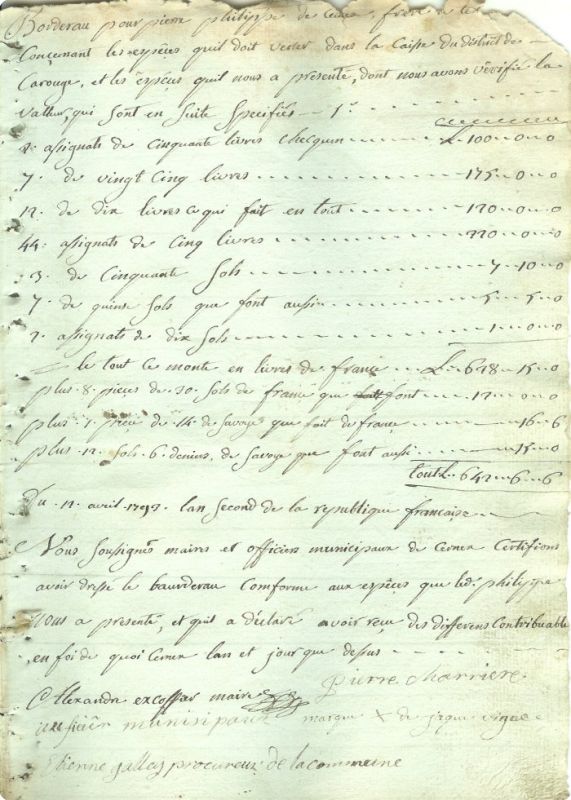 Borderau pour pierre philippe de
Conçernant les espêçes quil doit verser dans la Caisse du district de
Carouge, et les éspêçes quil nous a presenté, dont nous avons vêrifié la
valleur, qui sont en suite specifiés
2. assignats de cinquante livres chacqun L. 100 „ 0 „ 0
7. de vingt cinq livres 175 „ 0 „ 0
12 de dix livres ce qui fait en tout 120 „ 0 „ 0
44. assignats de Cinq livres 220 „ 0 „ 0
3. de Cinquante Sols 7 „ 10 „ 0
7 de quinse Sols que font aussi 5 „ 5 „ 0
2. assignats de dix Sols 1 „ 0 „ 0
le tout ce monte en livres de france L. 628 „ 15 „ 0
plus 8. pieces de 30. Sols de france que font 12 „ 0 „ 0
plus 1 piece de 14. de Savoye que fait de france 16 „ 6
plus 12 Sols 6. deniers de Savoye que font aussi 15 „ 0
tout L. 642 „ 6 „ 6
Du 12 avril 1793. lan second de la republique francaise
Nous Soussignés maires et officiers municipaux de Cernex Certifions
avoir dressé le baurderau Comforme aux espêçes que ledi philippe
Nous a presenté, et quil a déclaré avoir reçu des differens Contribuable
en foi de quoi Cernex lan et jour que dessus
pierre charriere
Alexandre excoffay maire
officiêr munisipaux marque X de
Etienne gallay procureur de la commeine